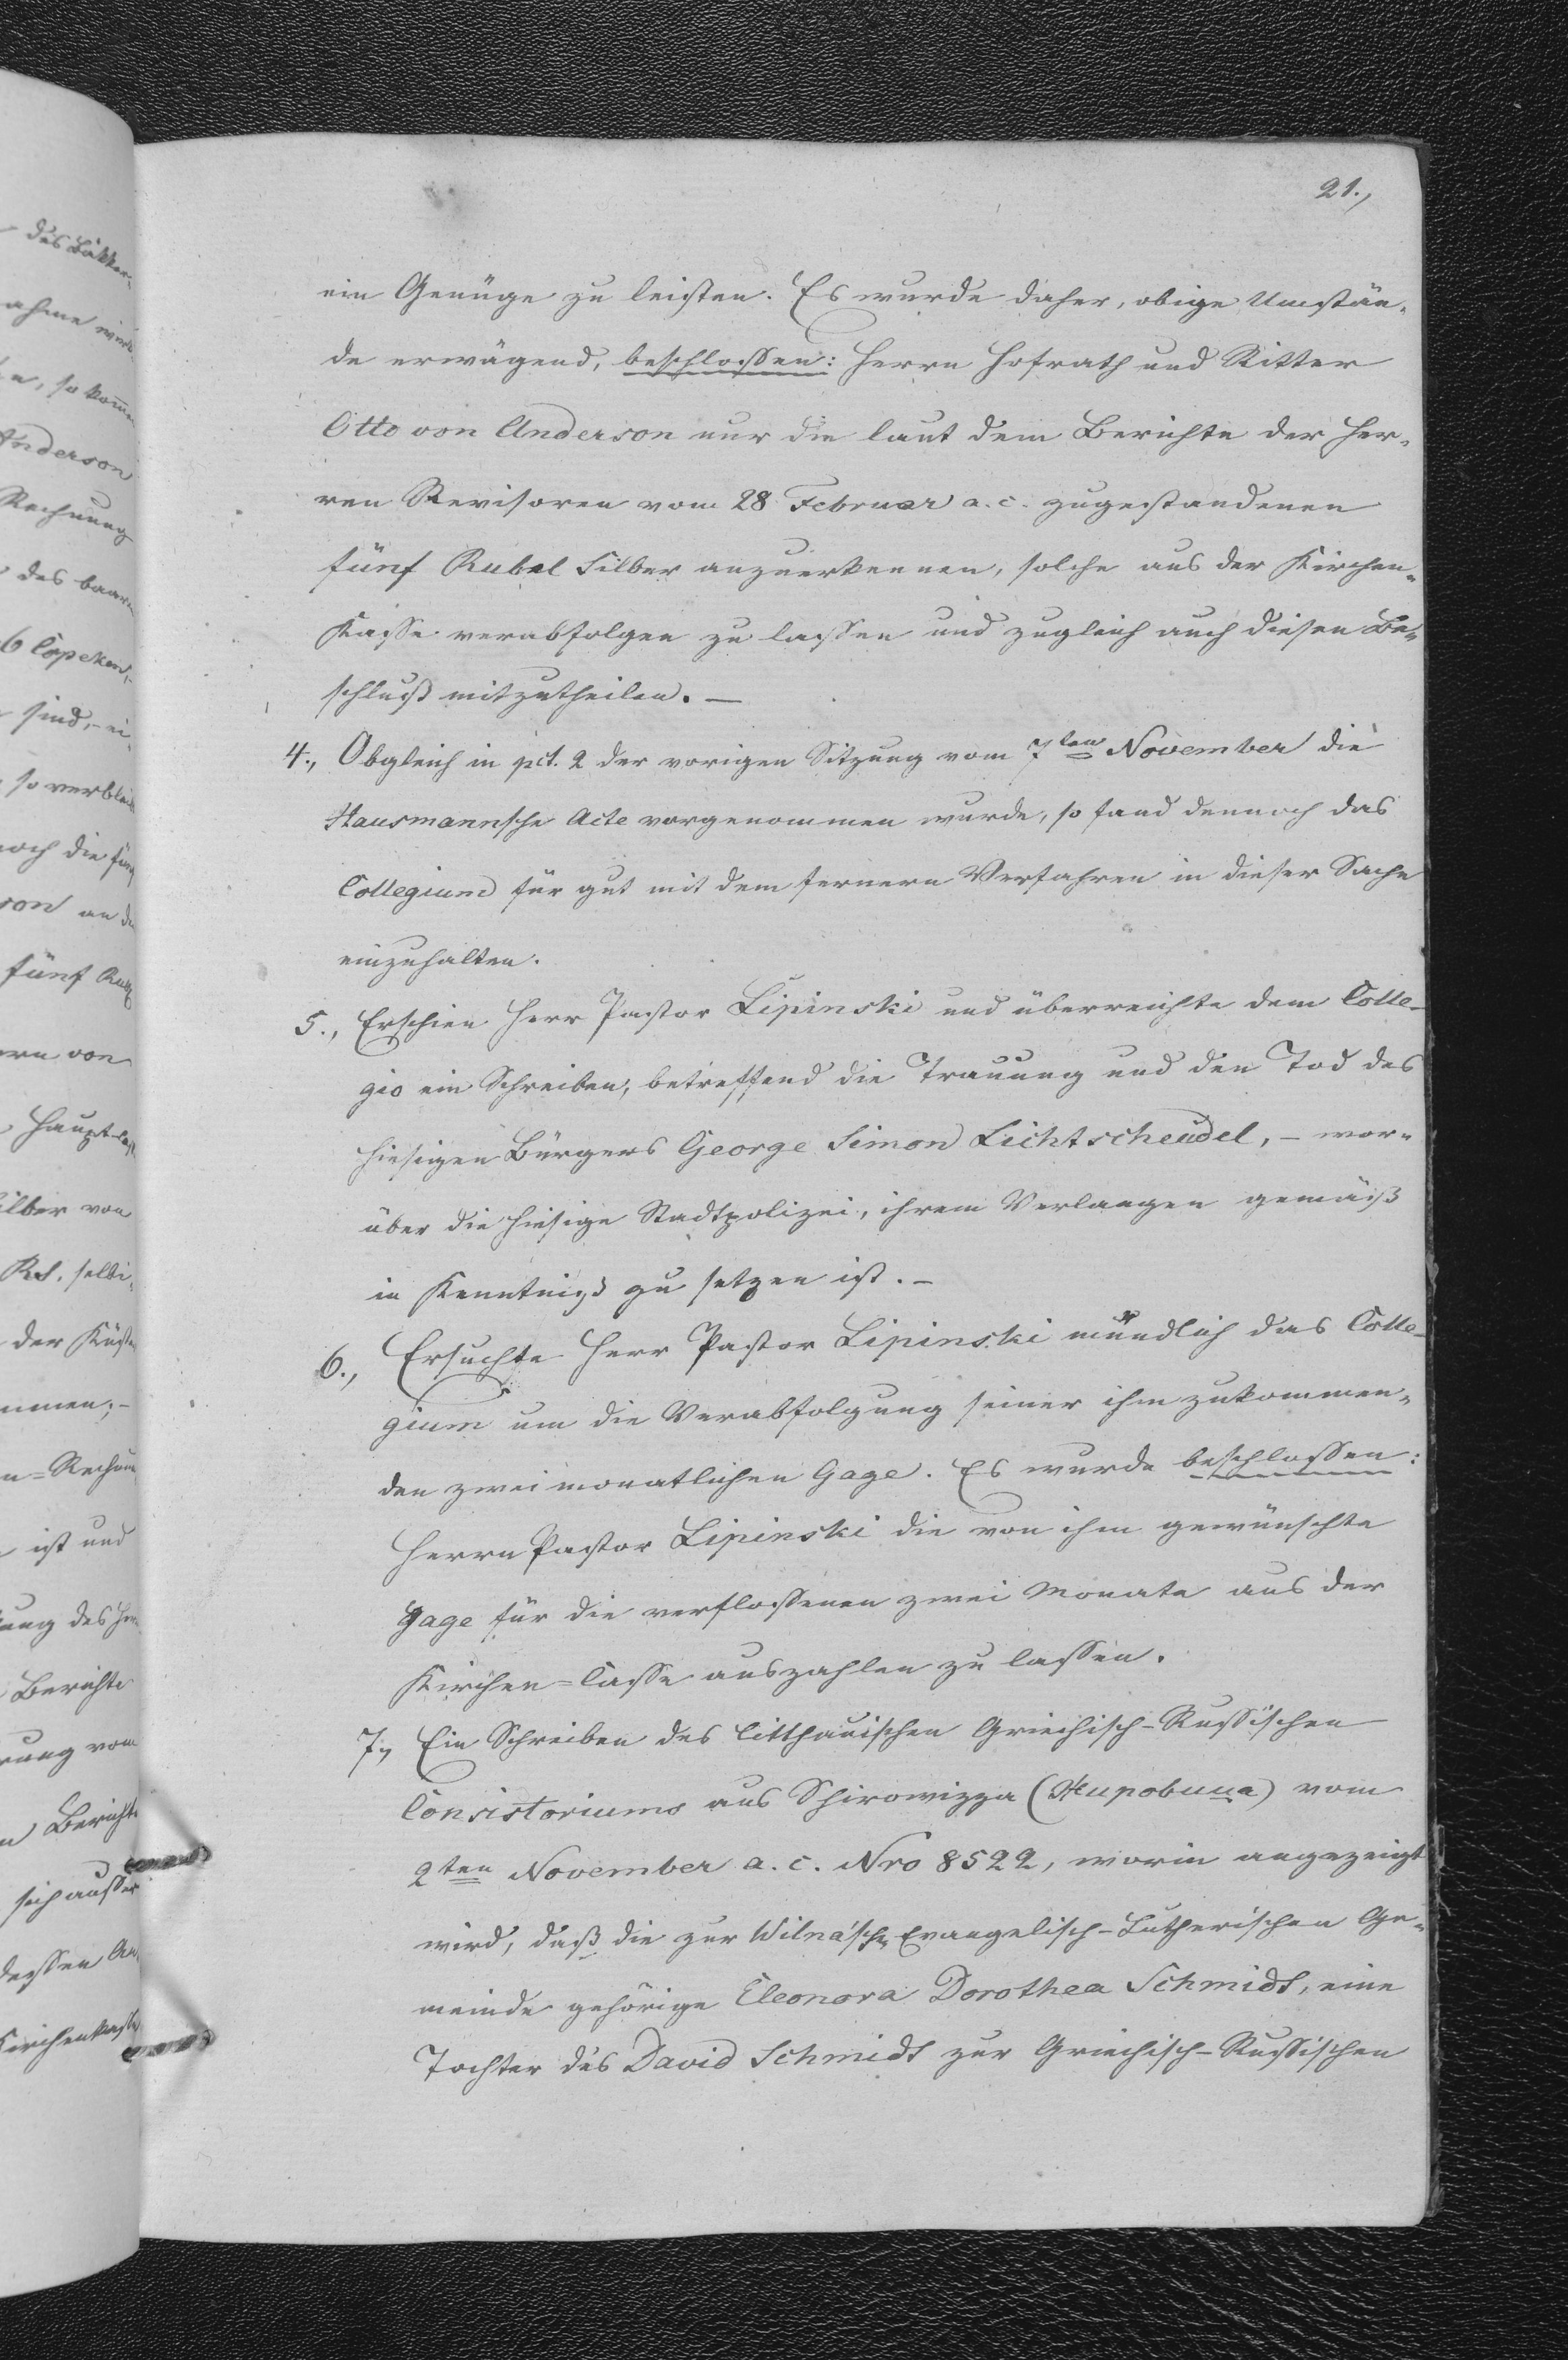 21.,
ein Genüge zu leisten. Es wurde daher, obige Umstän-
de erwägend, beschlossen: Herrn Hofrath und Ritter
Otto von Anderson nur die laut dem Berichte der Her-
ren Revisoren vom 28 Februar a. c. zugestandenen
fünf Rubel Silber anzuerkennen, solche aus der Kirchen-
Kasse verabfolgen zu lassen und zugleich auch diesen Be-
schluß mitzutheilen. —
4., Obgleich in pct. 2 der vorigen Sitzung vom 7ten November die
Hausmannsche Acte vorgenommen wurde, so fand dennoch das
Collegium für gut mit dem fernern Verfahren in dieser Sache
einzuhalten.
5., Erschien Herr Pastor Lipinski und überreichte dem Colle-
gio ein Schreiben, betreffend die Trauung und den Tod des
hiesigen Bürgers George Simon Lichtscheudel, – wor-
über die hiesige Stadtpolizei, ihrem Verlangen gemäß
in Kenntniß zu setzen ist. –
6., Ersuchte Herr Pastor Lipinski mündlich das Colle-
gium um die Verabfolgung seiner ihm zukommen-
den zweimonatlichen Gage. Es wurde beschlossen:
Herrn Pastor Lipinski die von ihm gewünschte
Gage für die verflossenen zwei Monate aus der
Kirchen-Casse auszahlen zu lassen.
7., Ein Schreiben des litthauischen Griechisch-Russischen
Consistoriums aus Schirowizza (Жировица) vom
2ten November a. c. Nro 8522, worin angezeigt
wird, daß die zur Wilna'schn Evangelisch-Lutherischen Ge-
meinde gehörige Eleonora Dorothea Schmidt, eine
Tochter des David Schmidt zur Griechisch-Russischen